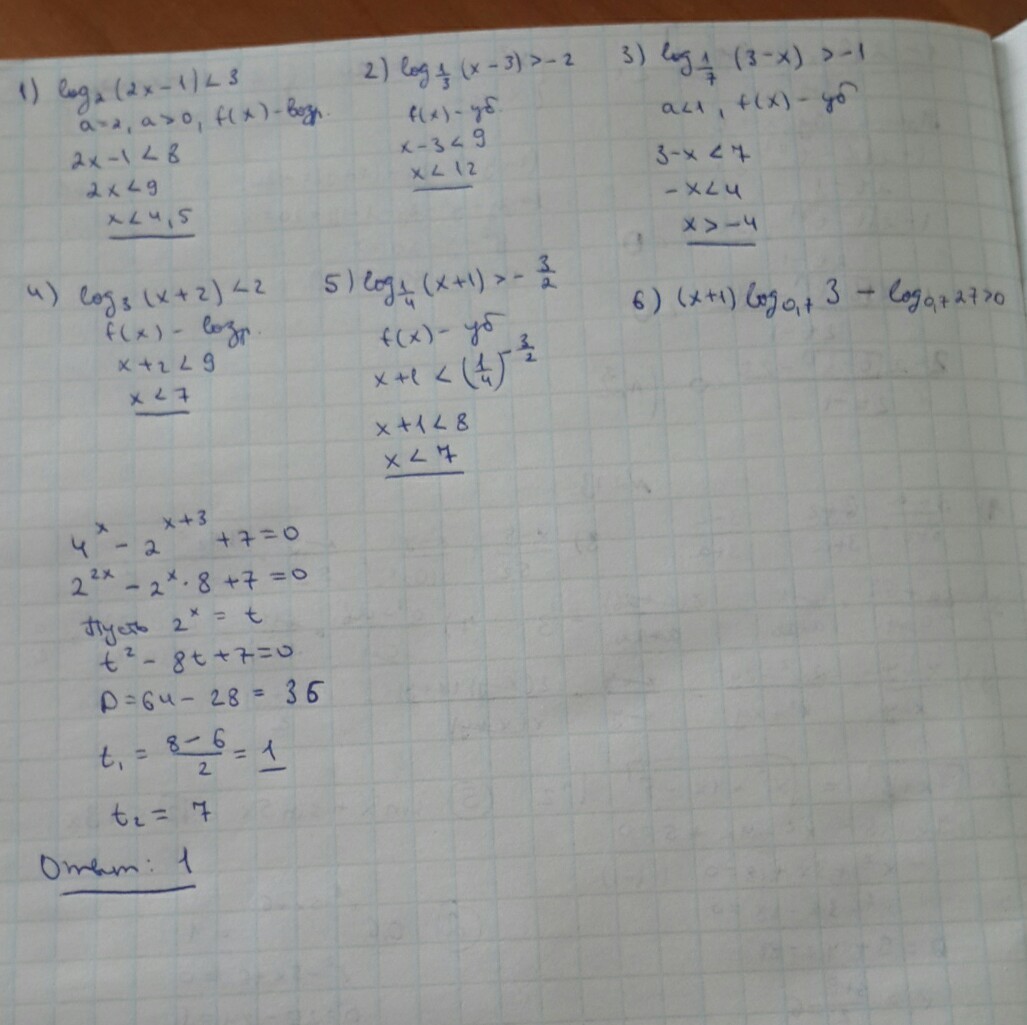 1) log₂(2x-1)<3
a=2, a>0, f(x)-возр.
2x-1<8
2x<9
x<4,5
2) log_{1/3}(x-3)>-2
f(x)-уб
x-3<9
x<12
3) log_{1/7}(3-x)>-1
a<1, f(x)-уб
3-x<7
-x<4
x>-4
4) log₃(x+2)<2
f(x)-возр.
x+2<9
x<7
5) log_{1/4}(x+1)>-3/2
f(x)-уб
x+1<(1/4)^{-3/2}
x+1<8
x<7
6) (x+1)log_{0,7}3-log_{0,7}27>0
4^x-2^{x+3}+7=0
2^{2x}-2^x·8+7=0
Пусть 2^x=t
t²-8t+7=0
D=64-28=36
t₁=(8-6)/2=1
t₂=7
Ответ: 1